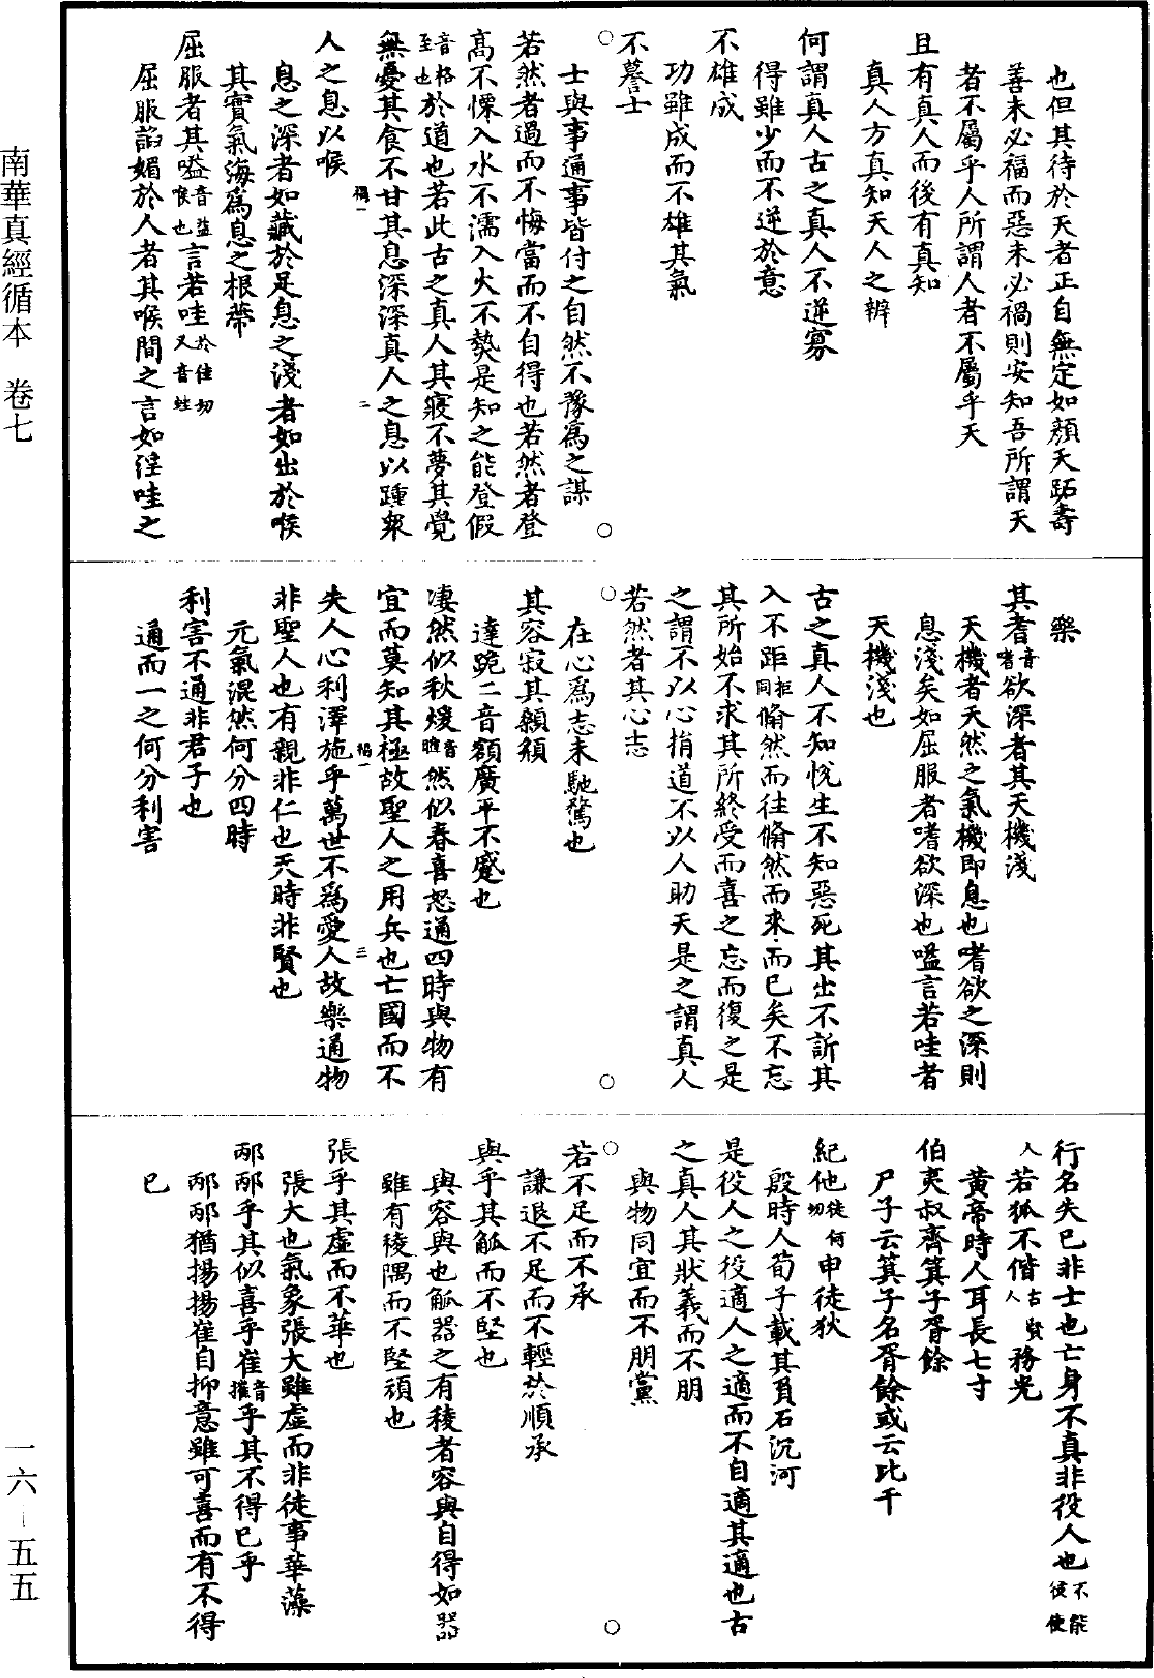 也但其待於天者正自無定如顏夭跖壽
善未必福而惡未必禍則安知吾所謂天
者不屬乎人所謂人者不屬乎天
且有真人而後有真知
真人方真知天人之辨
何謂真人古之真人不逆寡
得雖少而不逆於意
不雄成
功雖成而不雄其氣
不謩士
士與事通事皆付之自然不豫為之謀
若然者過而不悔當而不自得也若然者登
高不慄入水不濡入火不熱是知之能登假
音格至也於道也若此古之真人其寢不夢其覺
無憂其食不甘其息深深真人之息以踵衆
人之息以喉
息之深者如藏於足息之淺者如出於喉
其實氣海為息之根蔕
屈服者其嗌音益喉也言若哇於佳切又音蛙
屈服諂媚於人者其喉間之言如淫哇之
樂
其耆音嗜欲深者其天機淺
天機者天然之氣機即息也嗜欲之深則
息淺矣如屈服者嗜欲深也嗌言若哇者
天機淺也
古之真人不知悅生不知惡死其出不訢其
入不距拒同翛然而往翛然而來而已矣不忘
其所始不求其所終受而喜之忘而復之是
之謂不以心捐道不以人助天是之謂真人
若然者其心志
在心為志未馳騖也
其容寂其顙頯
達跪二音額廣平不蹙也
淒然似秋煖音暄然似春喜怒通四時與物有
宜而莫知其極故聖人之用兵也亡國而不
失人心利澤施乎萬世不為愛人故樂通物
非聖人也有親非仁也天時非賢也
元氣混然何分四時
利害不通非君子也
通而一之何分利害
行名失已非士也亡身不真非役人也不能役使
人若狐不偕古賢人務光
黃帝時人耳長七寸
伯夷叔齊箕子胥餘
尸子云箕子名胥餘或云比干
紀他徒何切申徒狄
殷時人荀子載其負石沉河
是役人之役適人之適而不自適其適也古
之真人其狀義而不朋
與物同宜而不朋黨
若不足而不承
謙退不足而不輕於順承
與乎其觚而不堅也
與容與也觚器之有稜者容與自得如器
雖有稜隅而不堅頑也
張乎其虛而不華也
張大也氣象張大雖虛而非徒事華藻
邴邴乎其似喜乎崔音摧乎其不得已乎
邴邴猶揚揚崔自抑意雖可喜而有不得
已
南華真經循本　卷七
一六－五五